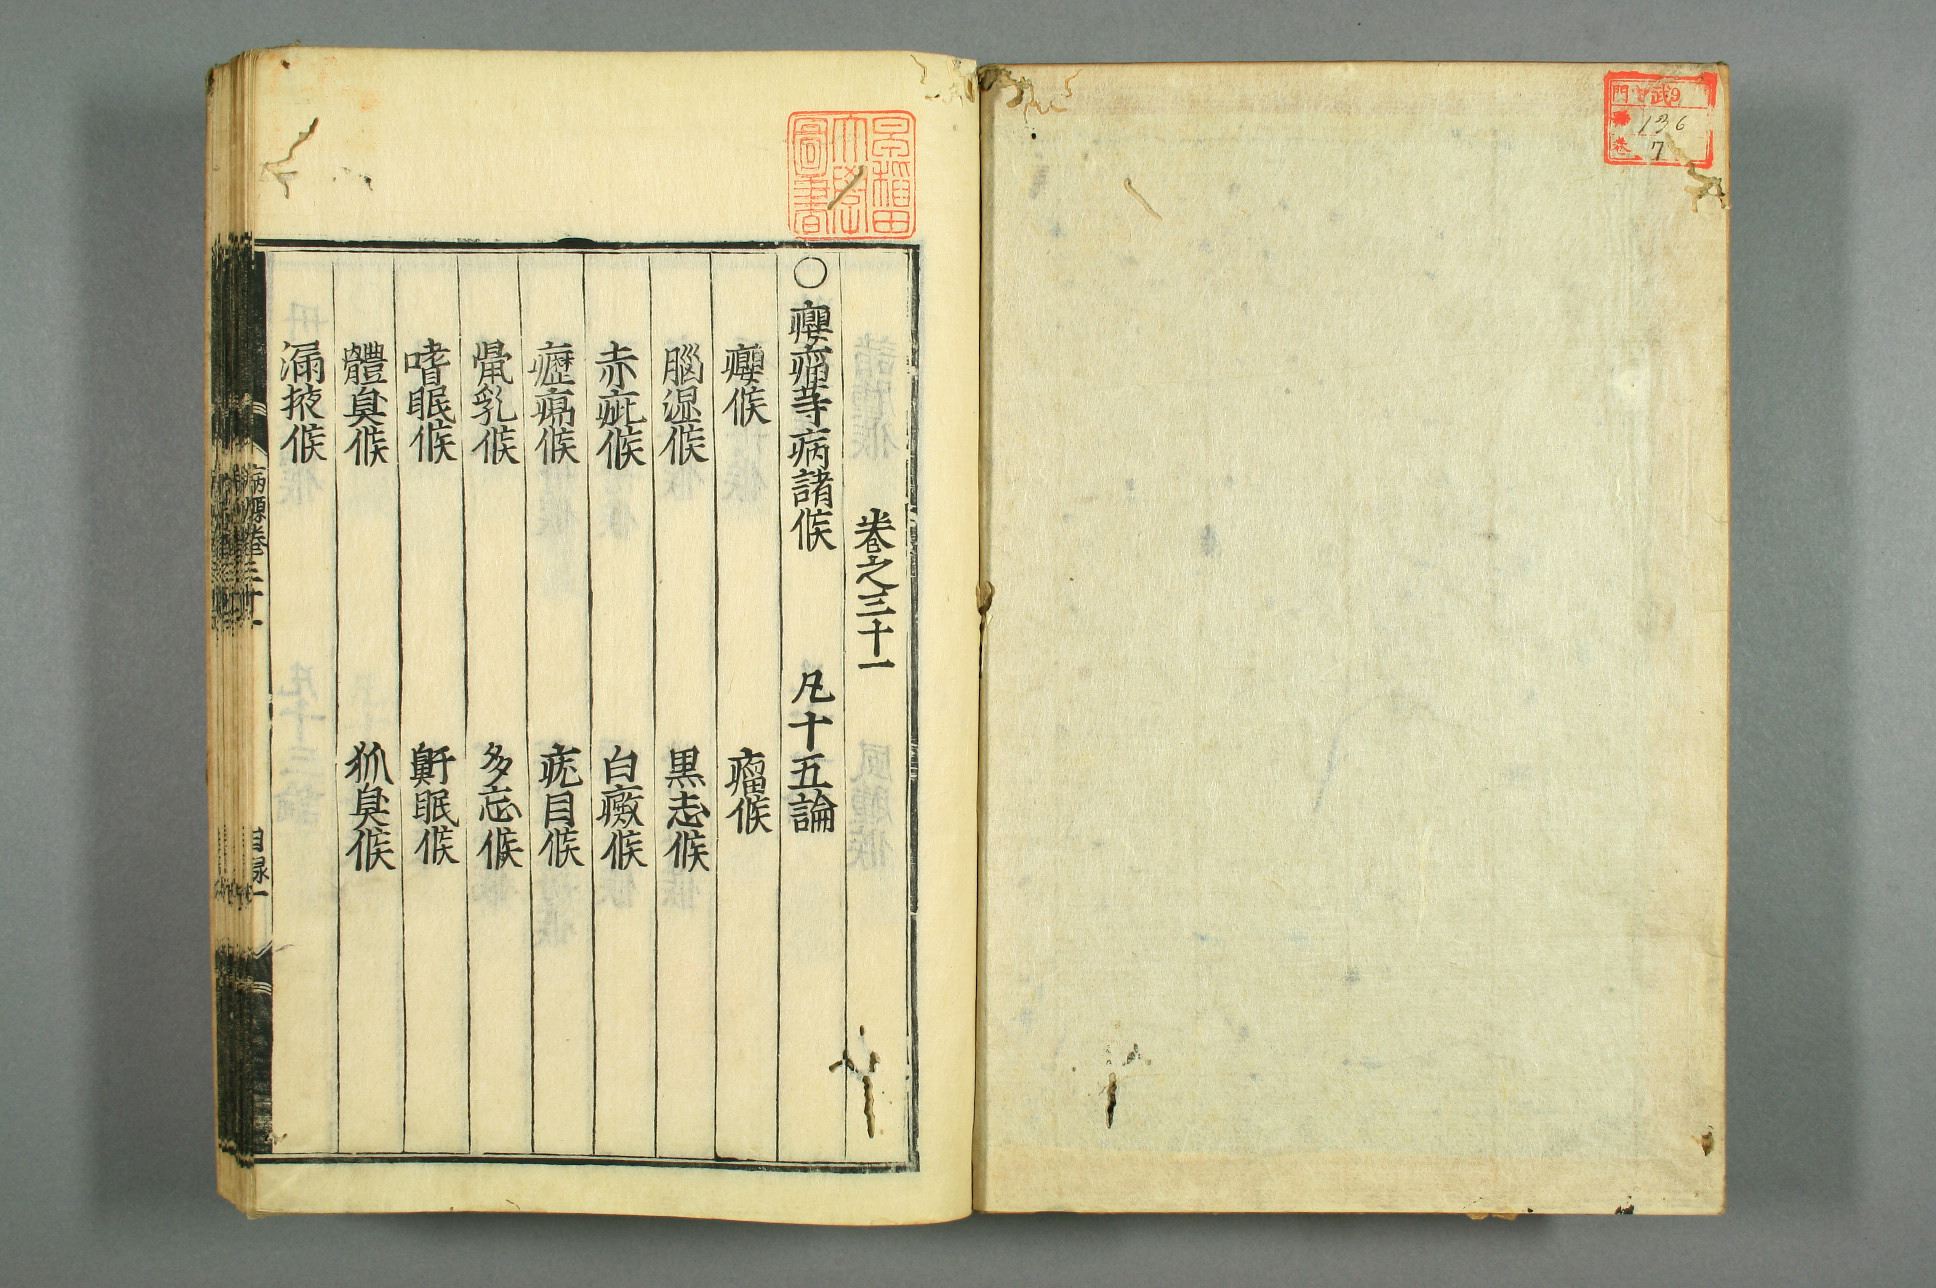 136
7
早稲田
大學
圖書
卷之三十一
○癭瘤等病諸候 凡十五論
癭候 瘤候
腦湿候 黒志候
赤疵候 白癜候
癧瘍候 疣目候
鼠乳候 多忘候
嗜眠候 鼾眠候
體臭候 狐臭候
漏掖候
病源卷三十一 目録一